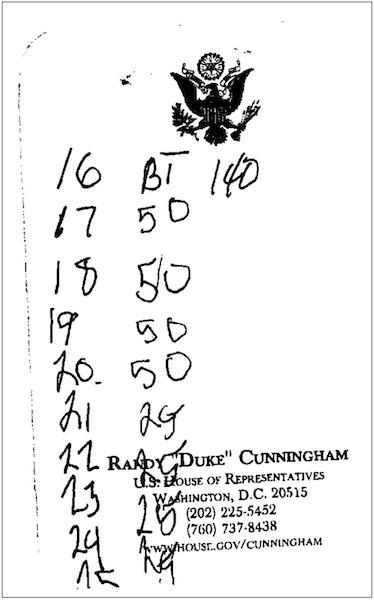 16 BT 140
17 50
18 50
19 50
20 50
21 25
22 25
RANDY "DUKE" CUNNINGHAM
U.S. HOUSE OF REPRESENTATIVES
23 25
WASHINGTON, D.C. 20515
(202) 225-5452
(760) 737-8438
24
WWW.HOUSE.GOV/CUNNINGHAM